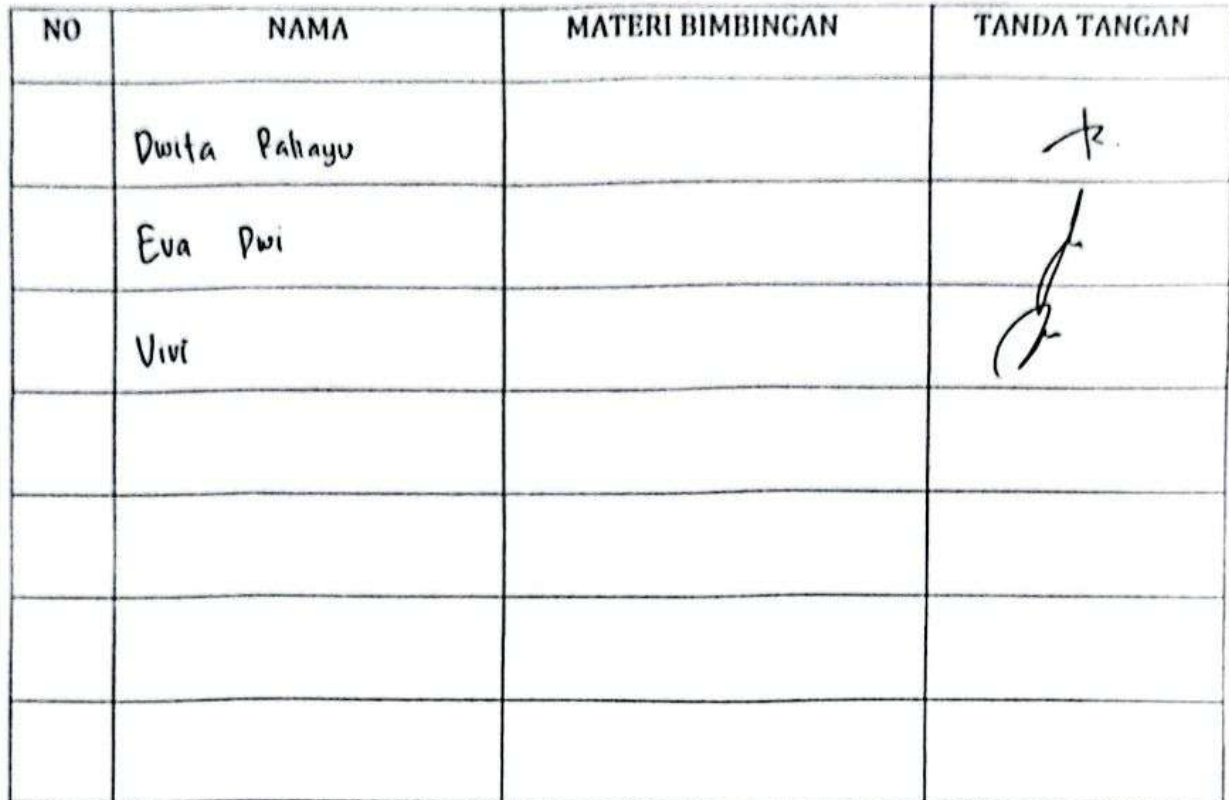 NO NAMA MATERI BIMBINGAN TANDA TANGAN
Dwita Pahayu
Eva Dwi
Vivi